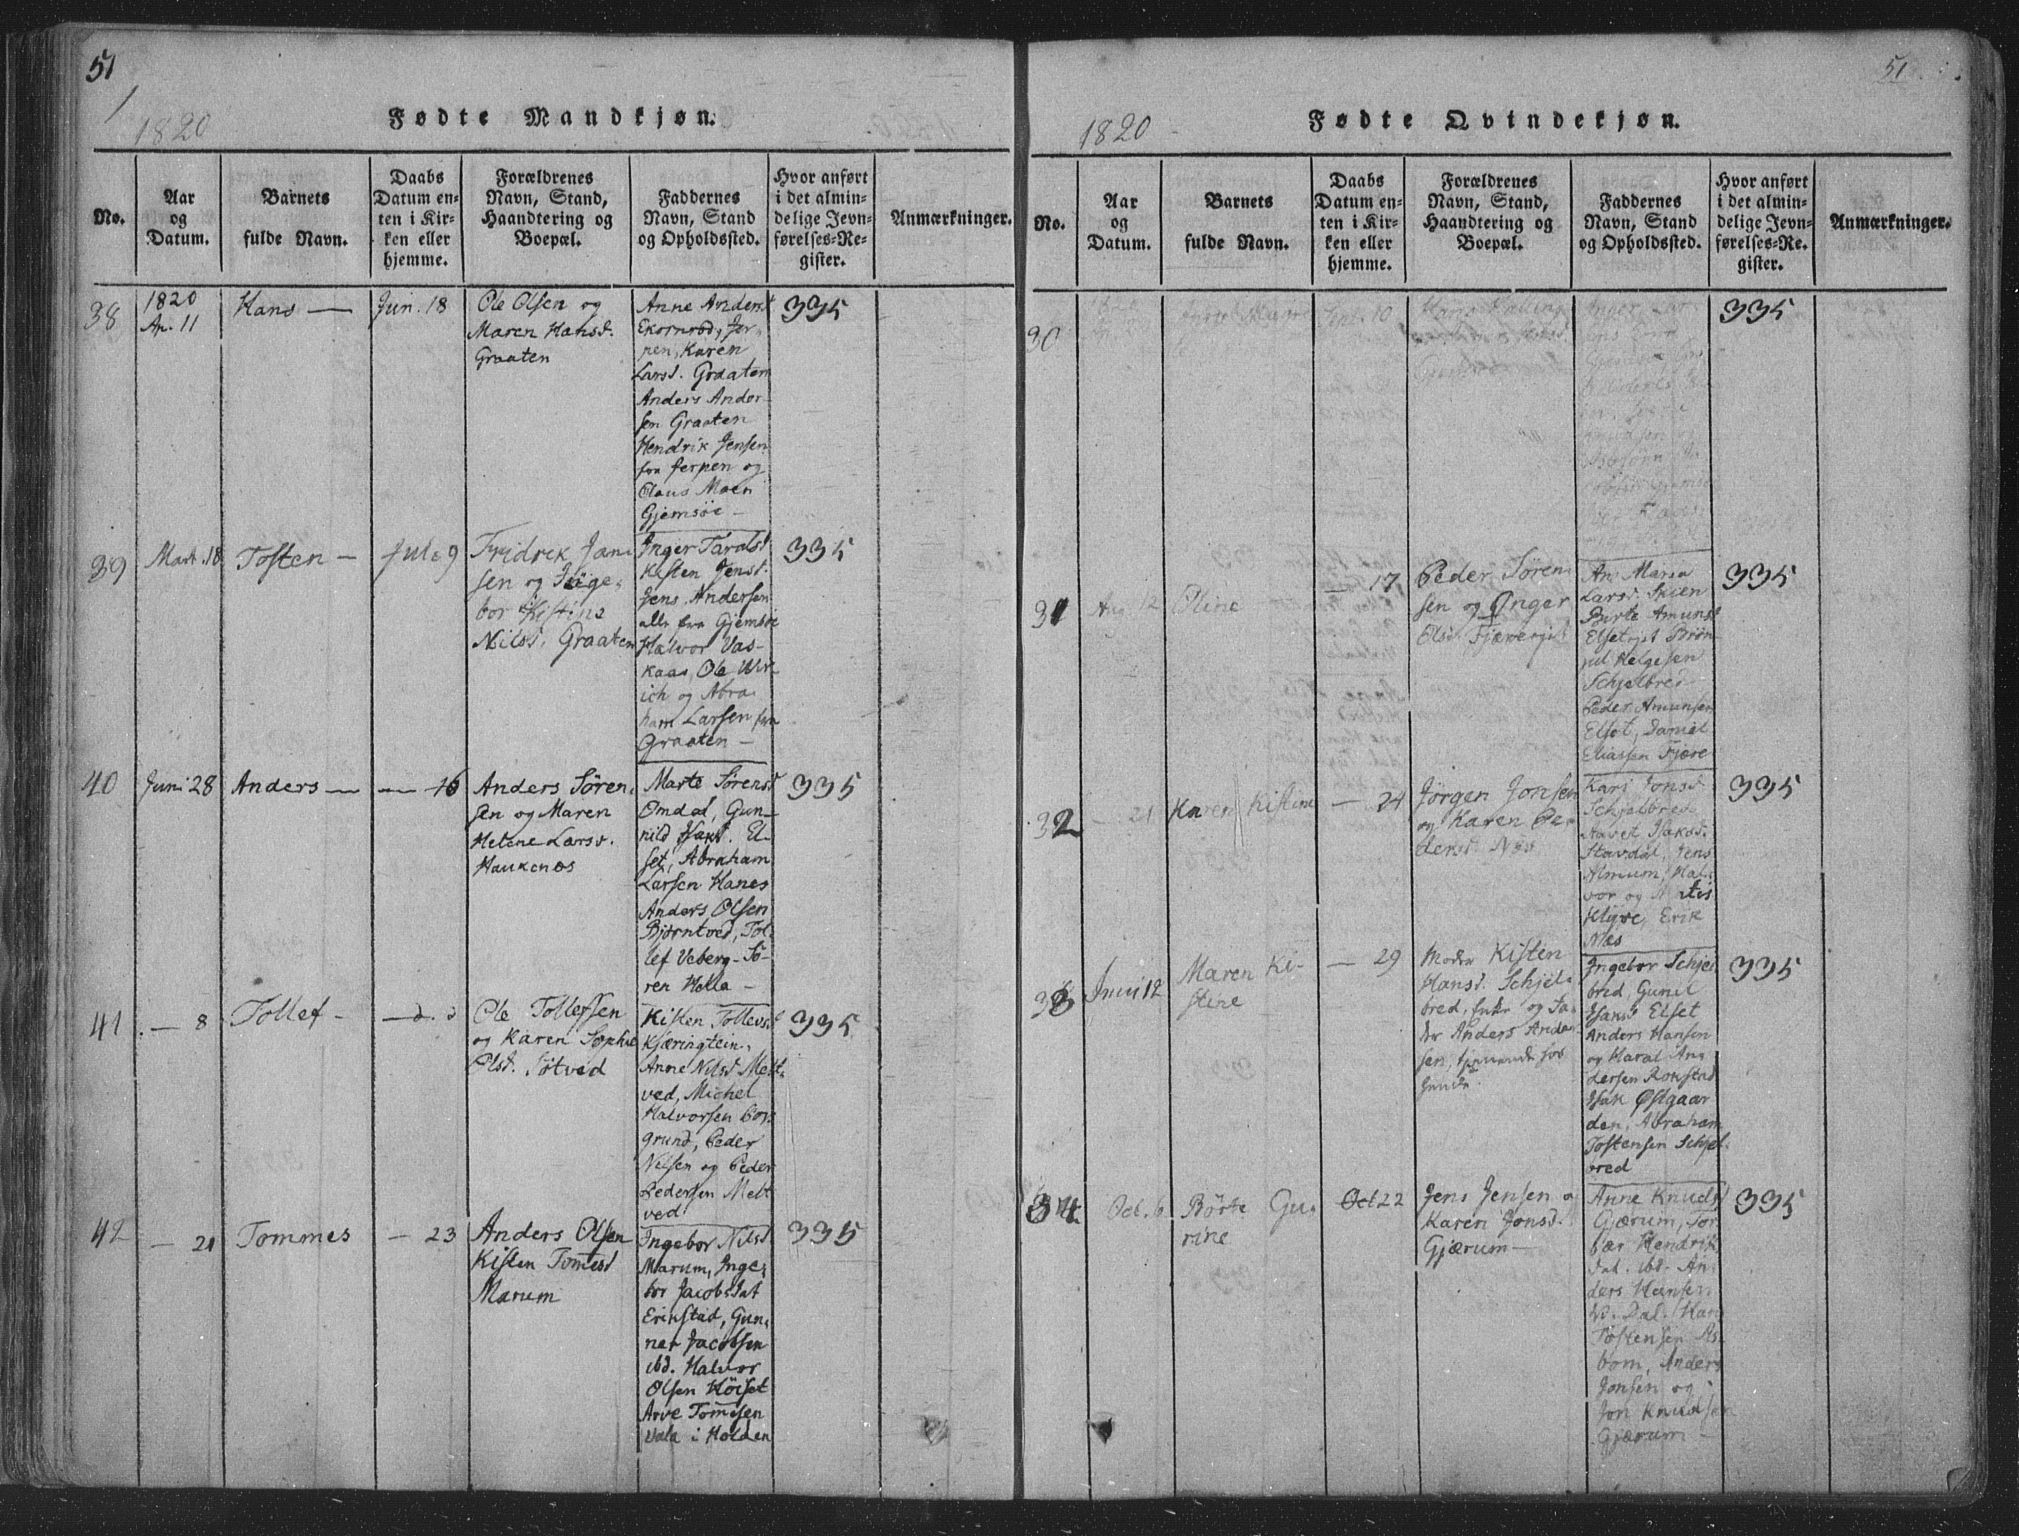 51
1820
Fødte Mandkjøn.
No.
Aar
og
Datum.
Barnets
fulde Navn.
Daabs
Datum en-
ten i Kir-
ken eller
hjemme.
Forældrenes
Navn, Stand,
Haandtering og
Boepæl.
Faddernes
Navn, Stand
og Opholdssted.
Hvor anført
i det almin-
delige Jevn-
førelses-Re-
gister.
Anmærkninger.
38
1820
Ap. 11
Hans —
Jun. 18
Ole Olsen og
Maren Hansd.
Graaten
Anne Andersd
Ekornrød, Jer-
pen, Karen
Larsd. Graaten
Anders Ander-
sen Graaten
Hendrik Jensen
fra Jerpen og
Claus Moen
Gjemsöe —
335
39
Mart. 18
Tosten —
Jule 9
Fridrik Jan-
sen og Inge-
bor Kistine
Nilsd. Graaten
Inger Taralsd
Kisten Jensd.
Jens Andersen
alle fra Gjemsöe
Halvor Vas-
kaas, Ole Ulr
ich og Abra-
ham Larsen fra
Graaten —
335
40
Juni 28
Anders —
— 16
Anders Sören-
sen og Maren
Helene Larsd.
Haukenæs
Marte Sörensd
Omdal, Gun-
nild Isaksd. El-
set, Abraham
Larsen Hanes
Anders Olsen
Bjørntved, Tol-
lef Veberg - Sö-
ren Holla —
335
41
— 8
Tollef -
— d. d
Ole Tollefsen
og Karen Sophie
Olsd. Søtved
Kisten Tollevsd
Kjæringtein,
Anne Nilsd Melt-
ved, Michel
Halvorsen Bors
grund, Peder
Nilsen og Peder
Pedersen Melt
ved
335
42
— 21
Tommes
— 23
Anders Olsen
Kisten Tomesd
Marum
Ingebor Nilsd
Marum, Inge-
bor Jacobsdat
Erikstad, Gun-
nar Jacobsen
ibd. Halvor
Olsen Höiset
Arve Tomesen
Vala i Holden
335
51
1820
Fødte Qvindekjøn.
No.
Aar
og
Datum.
Barnets
fulde Navn.
Daabs
Datum en-
ten i Kir-
ken eller
hjemme.
Forældrenes
Navn, Stand,
Haandtering og
Boepæl.
Faddernes
Navn, Stand
og Opholdssted.
Hvor anført
i det almin-
delige Jevn-
førelses-Re-
gister.
Anmærkninger.
30
10
335
31
Aug. 12
Oline
— 17
Peder Sören-
sen og Inger
Olsd.
An Maria
Larsd. Skien
Birte Amunsd
Brön-
nil Helgesen
Schjelbred
Peder Amunsen
Elset, Daniel
Eliassen Fjære
335
32
— 21
Karen Kistine
— 24
Jörgen Jonsen
og Karen Pe-
dersd. Næs
Kari Jonsd.
Schjelbred
Isaksd.
Stavdal, Jens
Almum, Hal-
vor og
Erik
Næs
335
33
Juni 12
Maren Ki-
stine
— 29
Moder Kisten
Hansd. Schjel-
bred, Enke og Fa-
der Anders Ander-
sen, tjenende hos
hende
Ingebor Schjel
bred, Gunil
Isaksd Elset
Anders Hansen
og Haral An-
dersen Rokstad
Isak Østgaar
den, Abraham
Tostensen Schjel
bred
335
34
Oct. 6
Börte Gu-
rine
Oct. 22
Jens Jensen og
Karen Jonsd.
Gjærum —
Anne Knudsd
Gjærum, Tor
bær Hendrik
dat. ibd. An-
ders Hansen
Tostensen As-
bom, Anders
Jonsen og
Jon Knudsen
Gjærum —
335